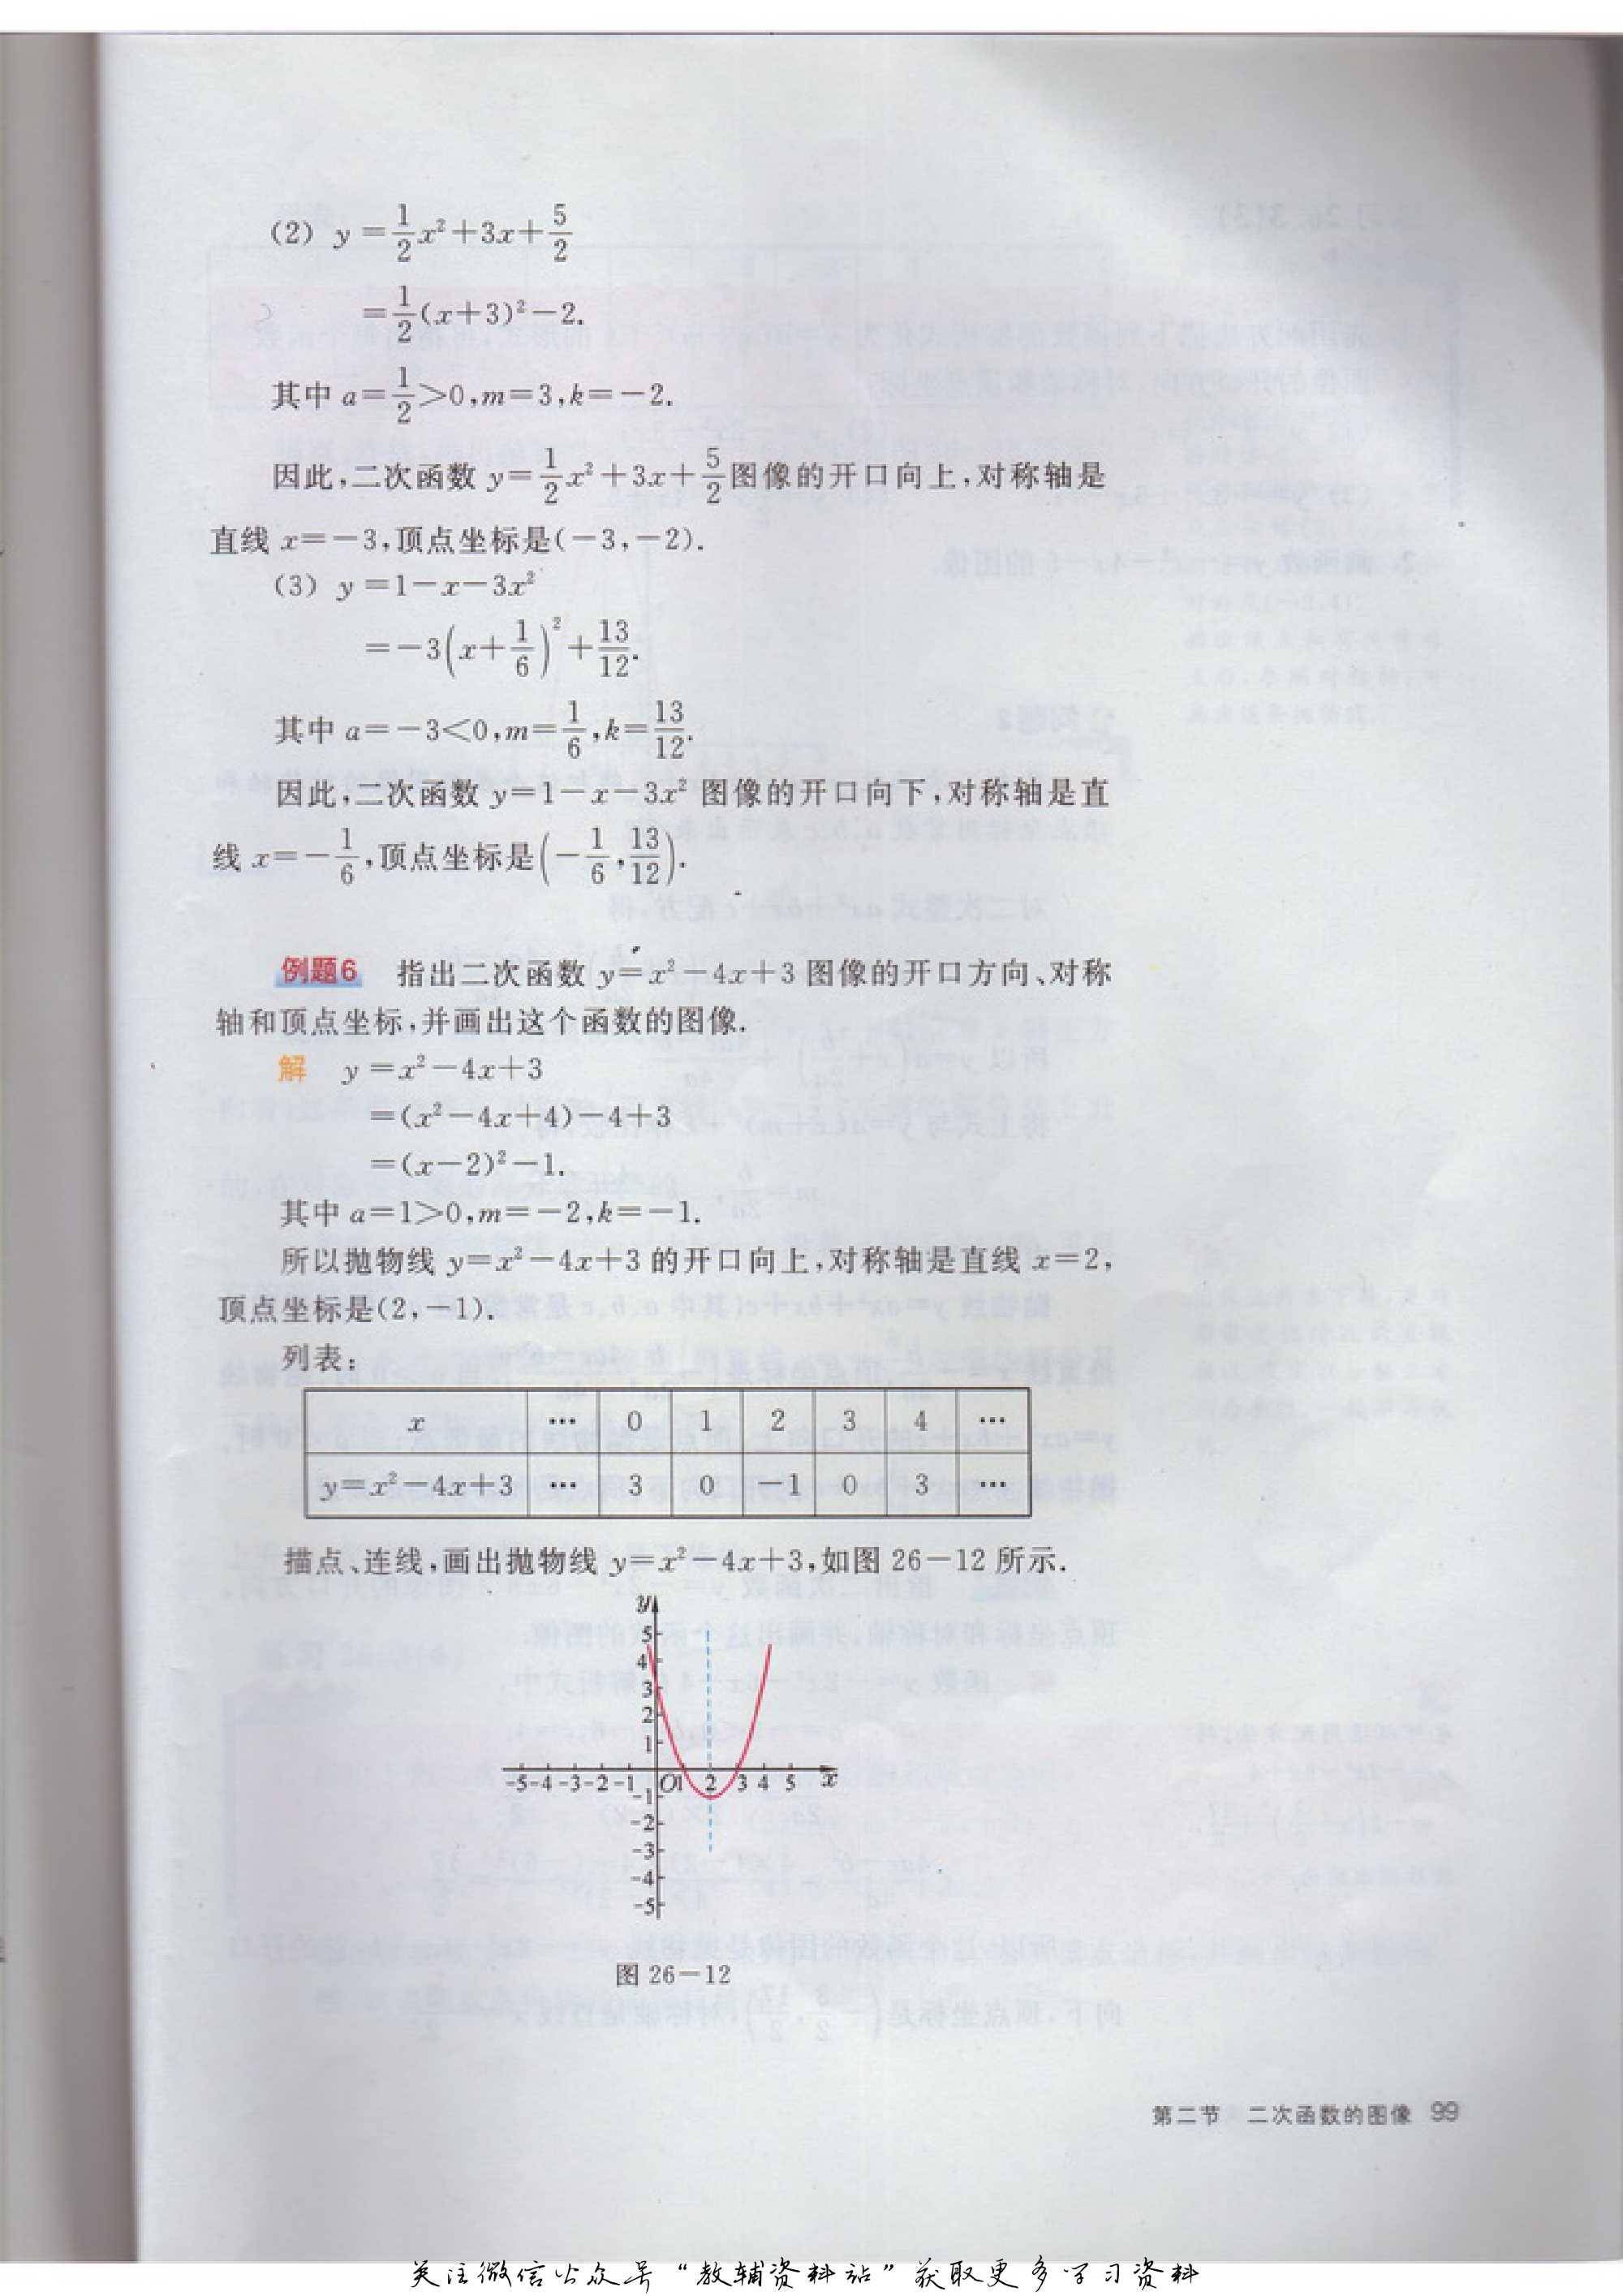 (2) y=1/2x²+3x+5/2
=1/2(x+3)²-2.
其中 a=1/2>0,m=3,k=-2.
因此,二次函数 y=1/2x²+3x+5/2图像的开口向上,对称轴是
直线 x=-3,顶点坐标是(-3,-2).
(3) y=1-x-3x²
=-3(x+1/6)²+13/12.
其中 a=-3<0,m=1/6,k=13/12.
因此,二次函数 y=1-x-3x² 图像的开口向下,对称轴是直
线 x=-1/6,顶点坐标是(-1/6,13/12).
例题6 指出二次函数 y=x²-4x+3 图像的开口方向、对称
轴和顶点坐标,并画出这个函数的图像.
解 y=x²-4x+3
=(x²-4x+4)-4+3
=(x-2)²-1.
其中 a=1>0,m=-2,k=-1.
所以抛物线 y=x²-4x+3 的开口向上,对称轴是直线 x=2,
顶点坐标是(2,-1).
列表:
x … 0 1 2 3 4 …
y=x²-4x+3 … 3 0 -1 0 3 …
描点、连线,画出抛物线 y=x²-4x+3,如图 26-12 所示.
y
5
4
3
2
1
-5 -4 -3 -2 -1 O 1 2 3 4 5 x
-1
-2
-3
-4
-5
图 26-12
第二节 二次函数的图像 99
关注微信公众号“教辅资料站”获取更多学习资料